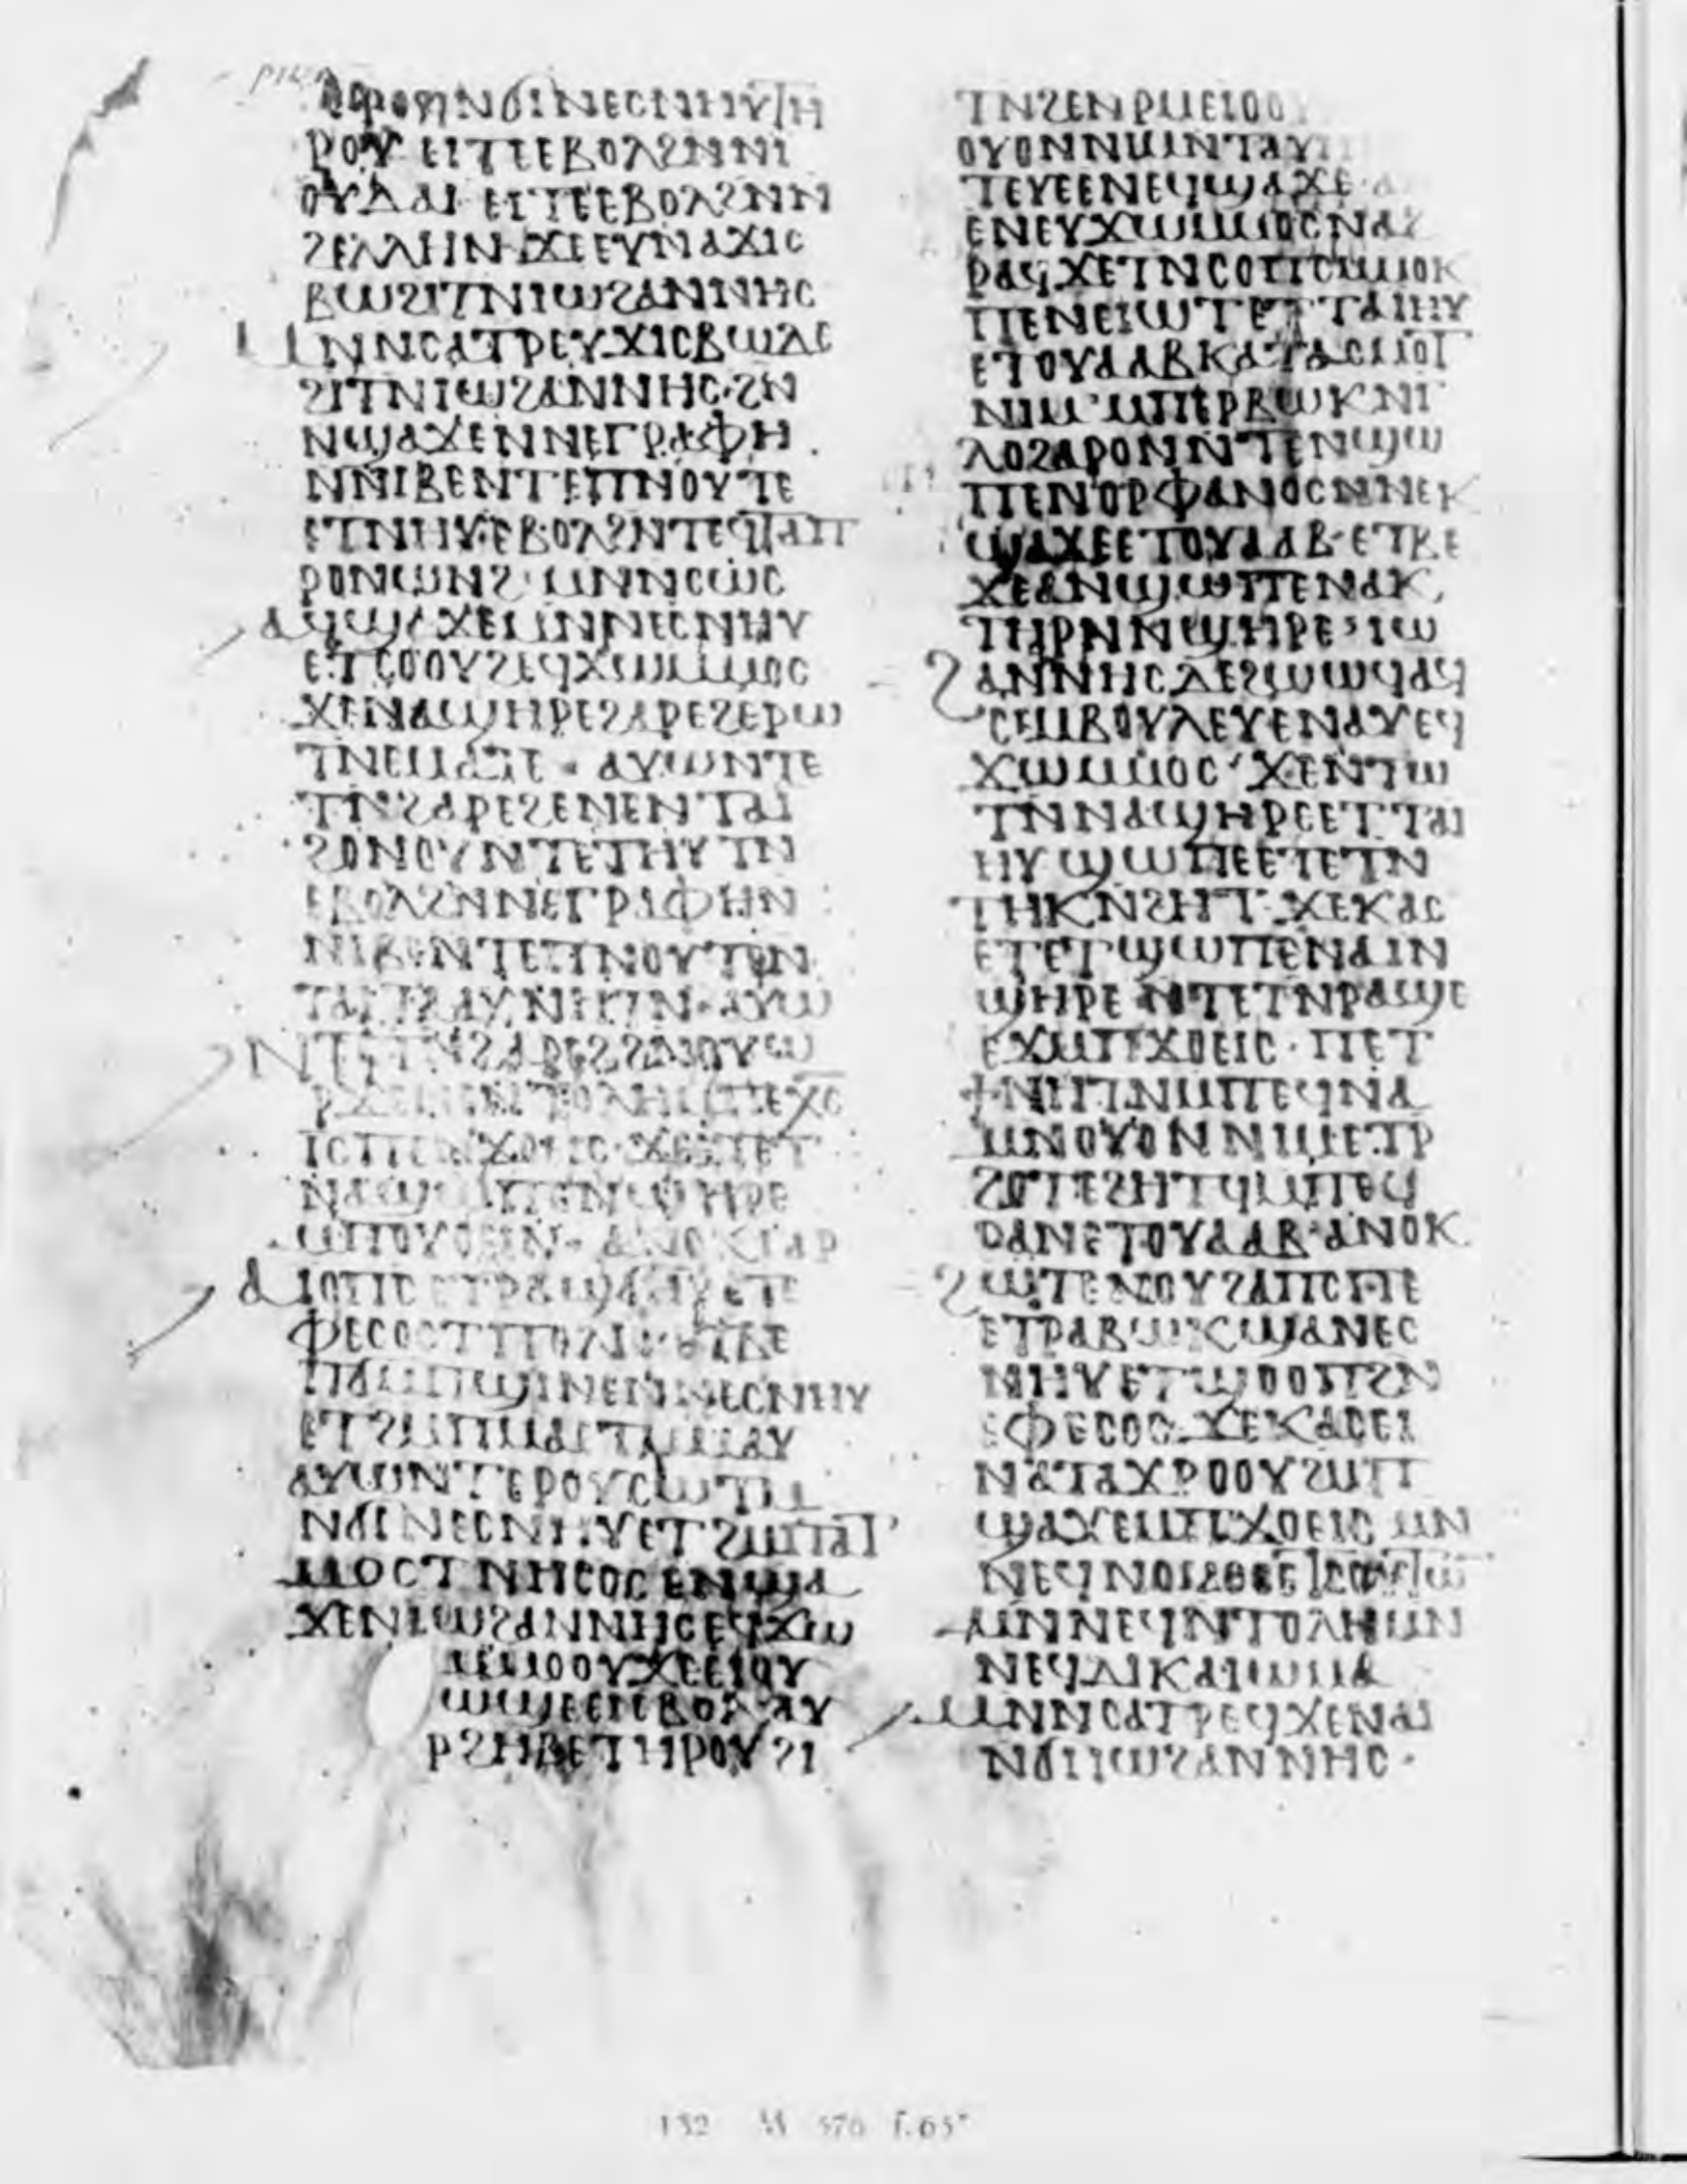 ⲢⲞⲨ ⲈⲒⲦⲈⲈⲂⲞⲖϨⲚⲚⲒ
ⲞⲨⲆⲀⲒ ⲈⲒⲦⲈⲈⲂⲞⲖϨⲚⲚ
ϨⲈⲖⲖⲎⲚ·ϪⲈⲈⲨⲚⲀϪⲒⲤ
ⲂⲰϨⲒⲦⲚⲒⲰϨⲀⲚⲚⲎⲤ
ⲘⲚⲚⲤⲀⲦⲢⲈⲨϪⲒⲤⲂⲰⲆⲈ
ϨⲒⲦⲚⲒⲰϨⲀⲚⲚⲎⲤ·ϨⲚ
ⲚϢⲀϪⲈⲚⲚⲈⲄⲢⲀⲪⲎ
ⲚⲚⲒⲂⲈⲚⲦⲈⲠⲚⲞⲨⲦⲈ
ⲈⲦⲚⲎⲨⲈⲂⲞⲖϨⲚⲦⲈϤⲦⲀⲠ
ⲢⲞⲚⲰⲚϨ·ⲘⲚⲚⲤⲰⲤ
ⲀϤϢⲀϪⲈⲘⲚⲚⲈⲤⲚⲎⲨ
ⲈⲦⲤⲞⲞⲨϨⲈϤϪⲰⲘⲘⲞⲤ
ϪⲈⲚⲀϢⲎⲢⲈϨⲀⲢⲈϨⲈⲢⲰ
ⲦⲚⲈⲘⲀⲦⲈ·ⲀⲨⲰⲚⲦⲈ
ⲦⲚϨⲀⲢⲈϨⲈⲚⲈⲚⲦⲀⲒ
ϨⲞⲚⲞⲨⲚⲦⲈⲦⲎⲨⲦⲚ
ⲈⲂⲞⲖϨⲚⲚⲈⲄⲢⲀⲪⲎⲚ
ⲚⲒⲂⲈⲚⲦⲈⲠⲚⲞⲨⲦⲈⲚ
ⲘⲠⲞⲨⲞⲈⲒⲚ·ⲀⲚⲞⲔⲄⲀⲢ
ⲪⲈⲤⲞⲤⲦⲠⲞⲖⲒⲤ·ⲈⲦⲂⲈ
ⲠⲀϬⲘⲠϢⲒⲚⲈⲚⲚⲈⲤⲚⲎⲨ
ⲈⲦϨⲘⲠⲘⲀⲈⲦⲘⲘⲀⲨ
ⲀⲨⲰⲚⲦⲈⲢⲞⲨⲤⲰⲦⲘ
ⲘⲞⲤⲦⲚⲎⲤⲞⲤⲈⲚϢⲀ
ϪⲈⲚⲒⲰϨⲀⲚⲚⲎⲤⲈϤϪⲰ
ⲘⲘⲞⲞⲨϪⲈⲈⲒⲞⲨ
ⲰϢⲈⲈⲒⲈⲂⲞⲖ·ⲀⲨ
ⲢϨⲎⲂⲈⲦⲎⲢⲞⲨϨⲒ
ⲦⲚϨⲈⲚⲢⲘⲈⲒⲞⲞⲨ
ⲞⲨⲞⲚⲚⲒⲘⲚⲦⲀⲨ
ⲦⲈⲨⲈⲈⲚⲈϤϢⲀϪⲈ
ⲈⲚⲈⲨϪⲰⲘⲘⲞⲤⲚⲀ
ⲢⲀϤϪⲈⲦⲚⲤⲞⲠⲤⲘⲘⲞⲔ
ⲠⲈⲚⲈⲒⲰⲦⲈⲦⲦⲀⲒⲎⲨ
ⲈⲦⲞⲨⲀⲀⲂⲔⲀⲦⲀⲤⲘⲞⲦ
ⲚⲒⲘ·ⲘⲠⲈⲢⲂⲰⲔⲚⲄ
ⲖⲞϨⲀⲢⲞⲚⲚⲦⲈⲚϢⲰ
ⲠⲈⲚⲞⲢⲪⲀⲚⲞⲤⲚⲚⲈⲔ
ϢⲀϪⲈⲈⲦⲞⲨⲀⲀⲂ·ⲈⲦⲂⲈ
ϪⲈⲀⲚϢⲰⲠⲈⲚⲀⲔ
ⲦⲎⲢⲚⲚϢⲎⲢⲈ·ⲒⲰ
ϨⲀⲚⲚⲎⲤⲆⲈϨⲰⲰϤⲀϤ
ⲤⲈⲘⲂⲞⲨⲖⲈⲨⲈⲚⲀⲨⲈϤ
ϪⲰⲘⲘⲞⲤ·ϪⲈⲚⲦⲰ
ⲦⲚⲚⲀϢⲎⲢⲈⲈⲦⲦⲀⲒ
ⲎⲨϢⲰⲠⲈⲈⲦⲈⲦⲚ
ⲦⲎⲔⲚϨⲎⲦ·ϪⲈⲔⲀⲤ
ⲈⲦⲈⲦϢⲰⲠⲈⲚⲀⲒⲚ
ϢⲎⲢⲈⲚⲦⲈⲦⲚⲢⲀϢⲈ
ⲈϪⲘⲠϪⲞⲈⲒⲤ·ⲠⲈⲦ
ϮⲚⲎⲦⲚⲘⲠⲈϤⲚⲀ
ⲘⲚⲞⲨⲞⲚⲚⲒⲘⲈⲦⲢ
ϨⲞⲦⲈϨⲎⲦϤⲘⲠⲈϤ
ⲢⲀⲚⲈⲦⲞⲨⲀⲀⲂ·ⲀⲚⲞⲔ
ϨⲰⲦⲈⲚⲞⲨϨⲀⲠⲤⲠⲈ
ⲈⲦⲢⲀⲂⲰⲔϢⲀⲚⲈⲤ
ⲚⲎⲨⲈⲦϢⲞⲞⲠϨⲚ
ⲈⲪⲈⲤⲞⲤ·ϪⲈⲔⲀⲤⲈⲒ
ⲚⲀⲦⲀϪⲢⲞⲞⲨϨⲘⲠ
ϢⲀϪⲈⲘⲠϪⲞⲈⲒⲤ ⲘⲚ
ⲘⲚⲚⲈϤⲚⲦⲞⲖⲎⲘⲚ
ⲚⲈϤⲆⲒⲔⲀⲒⲰⲘⲀ
ⲘⲚⲚⲤⲀⲦⲢⲈϤϪⲈⲚⲀⲒ
ⲚϬⲒⲒⲰϨⲀⲚⲚⲎⲤ·
132 M 576 f.65ʳ